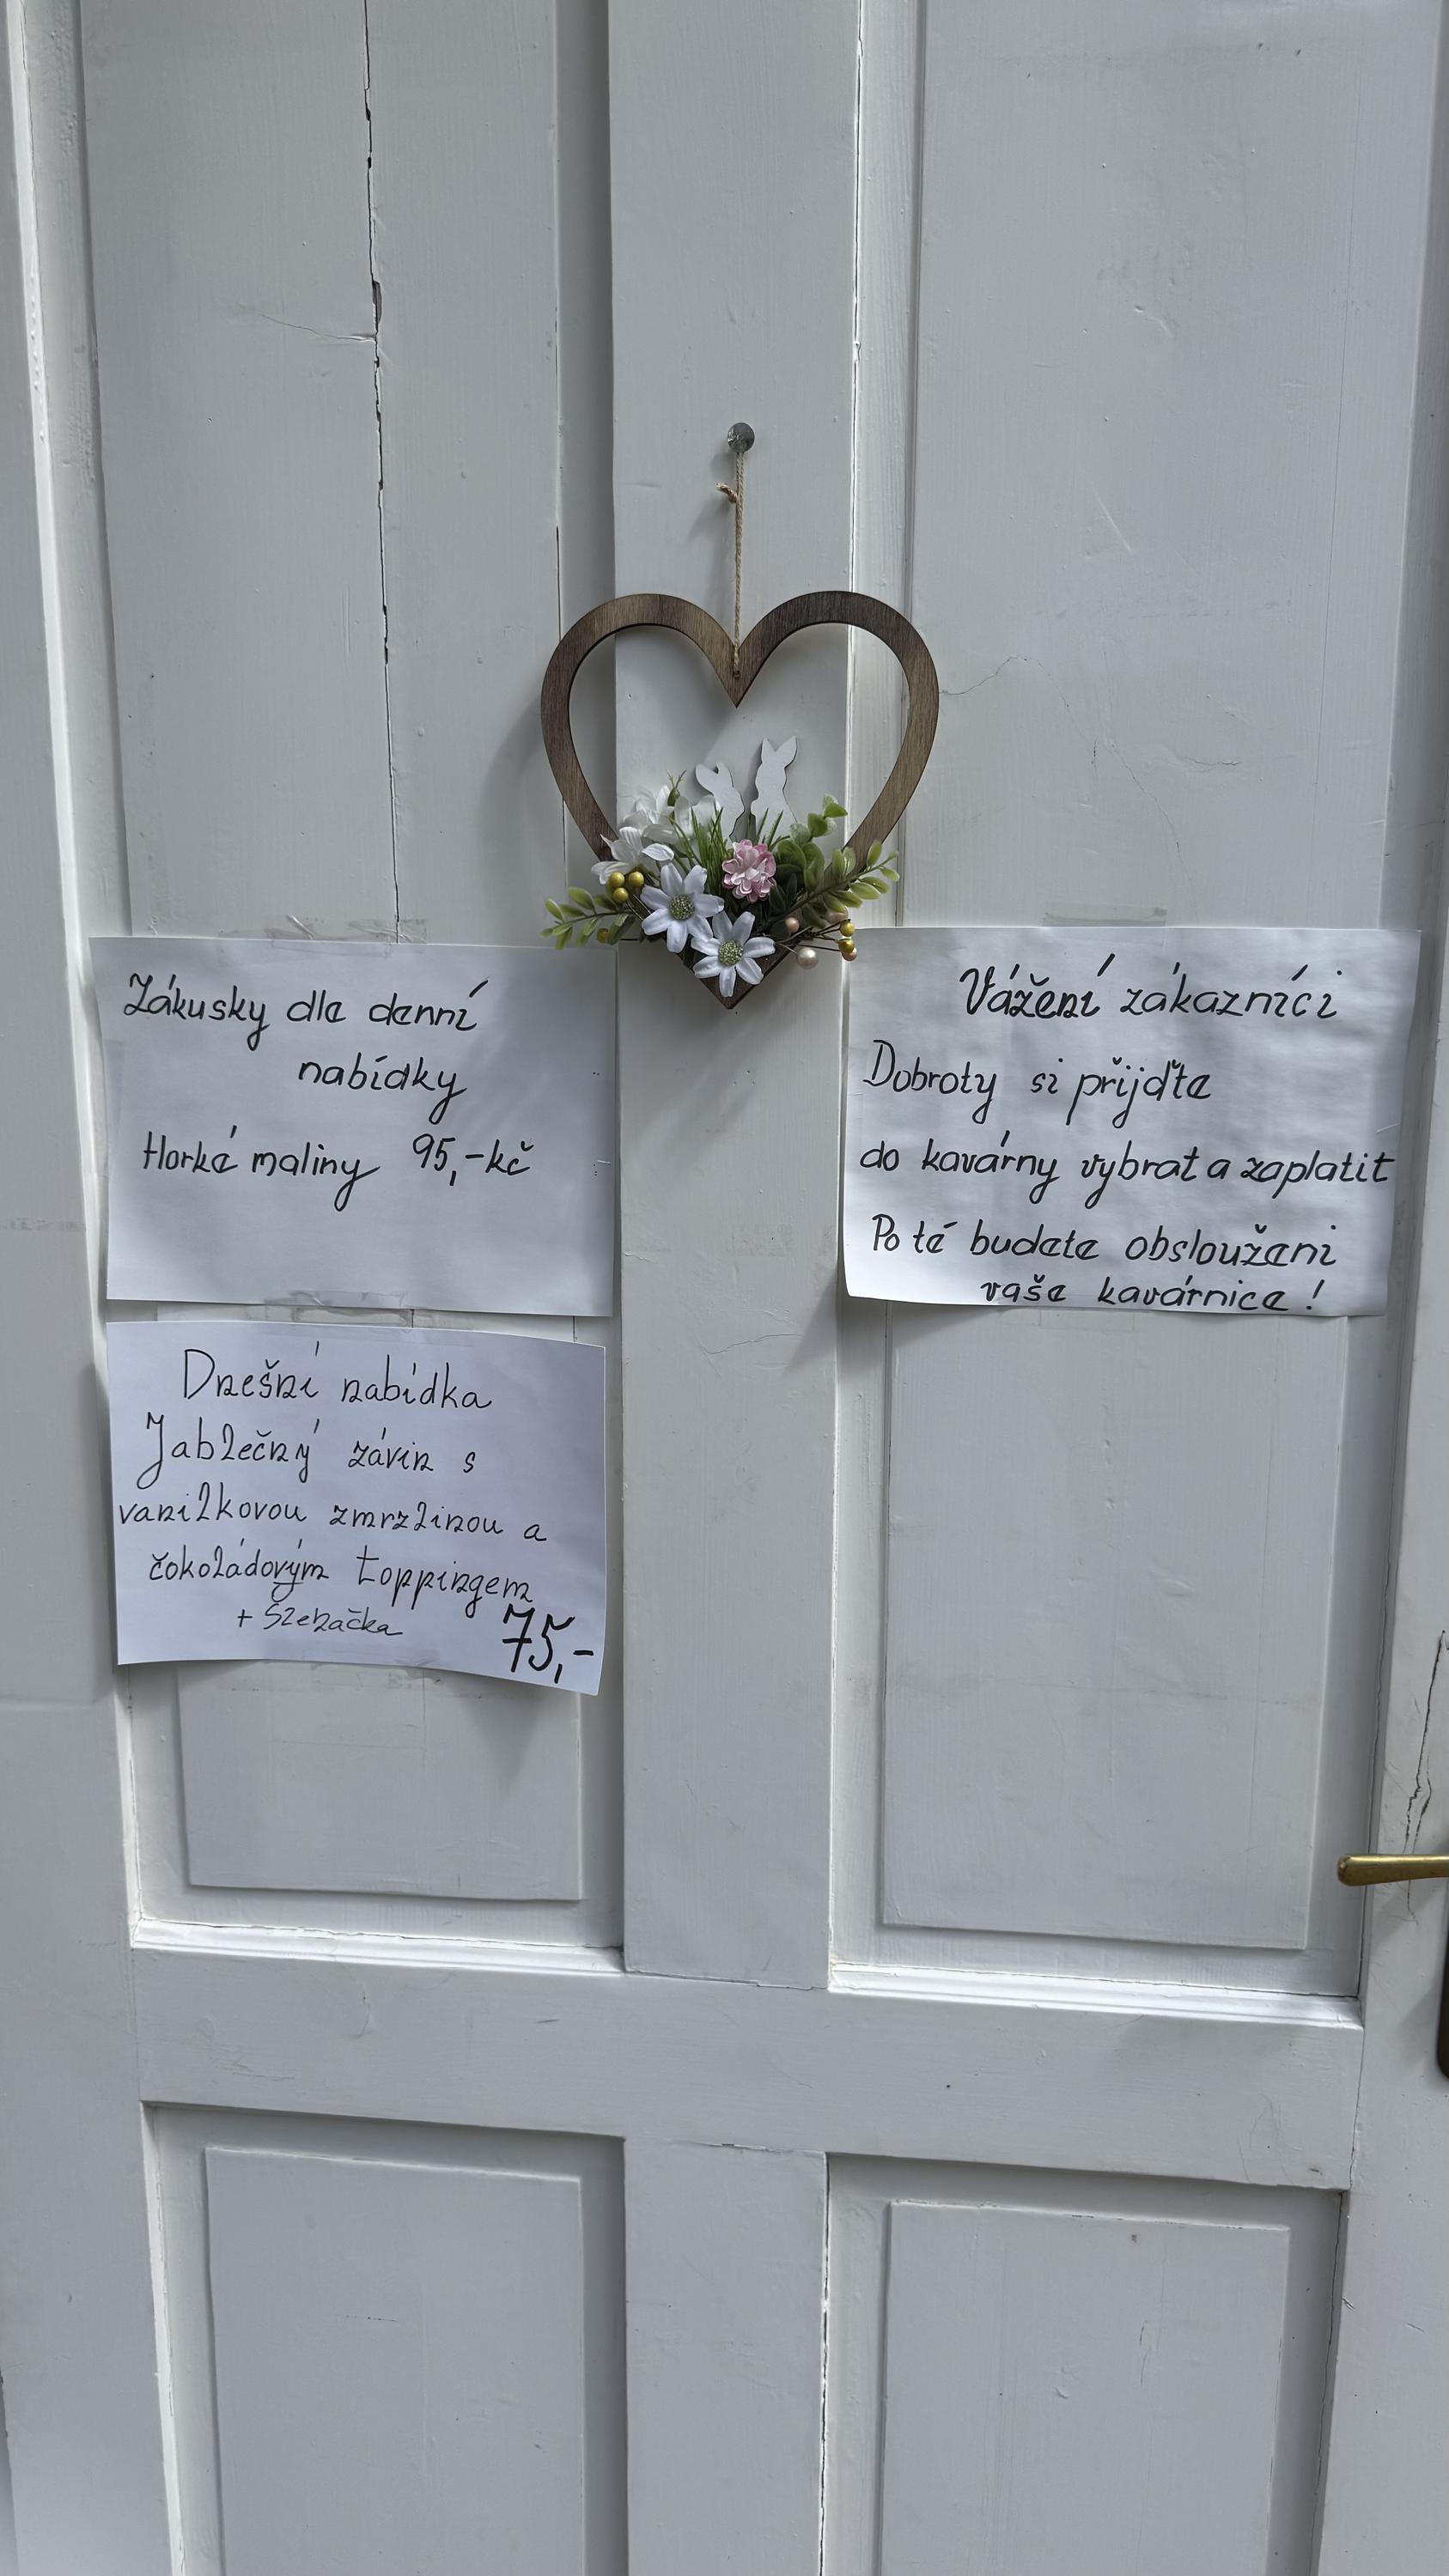 Zákusky dle denní
nabídky
Horké maliny 95,-kč
Dnešní nabídka
Jablečný závin s
vanilkovou zmrzlinou a
čokoládovým toppingem
+ šlehačka
75,-
Vážení zákazníci
Dobroty si přijďte
do kavárny vybrat a zaplatit
Po té budete obslouženi
vaše kavárnice!